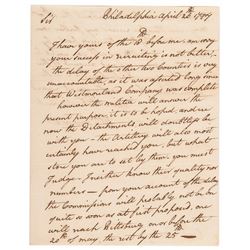 Sir Philadelphia April 26th 1794
I have yours of the 18th before me, am sorry
your success in recruiting is not better.
the delay of the other two Counties is very
unaccountable, as it was asserted long since
that Westmoreland Company was complete
however the militia will answer the
present purpose, it is to be hoped, and ere
now the Detachments will doubtless be
with you — the Artillery will also most
certainly have reached you, but what
stores you are to set by them, you must
Judge, I neither know their quality nor
numbers — from your account of the
the Commissions will probably not be in
quite so soon as at first proposed, one
will reach Pittsburg on or before the
20th of may, the rest by the 25th —